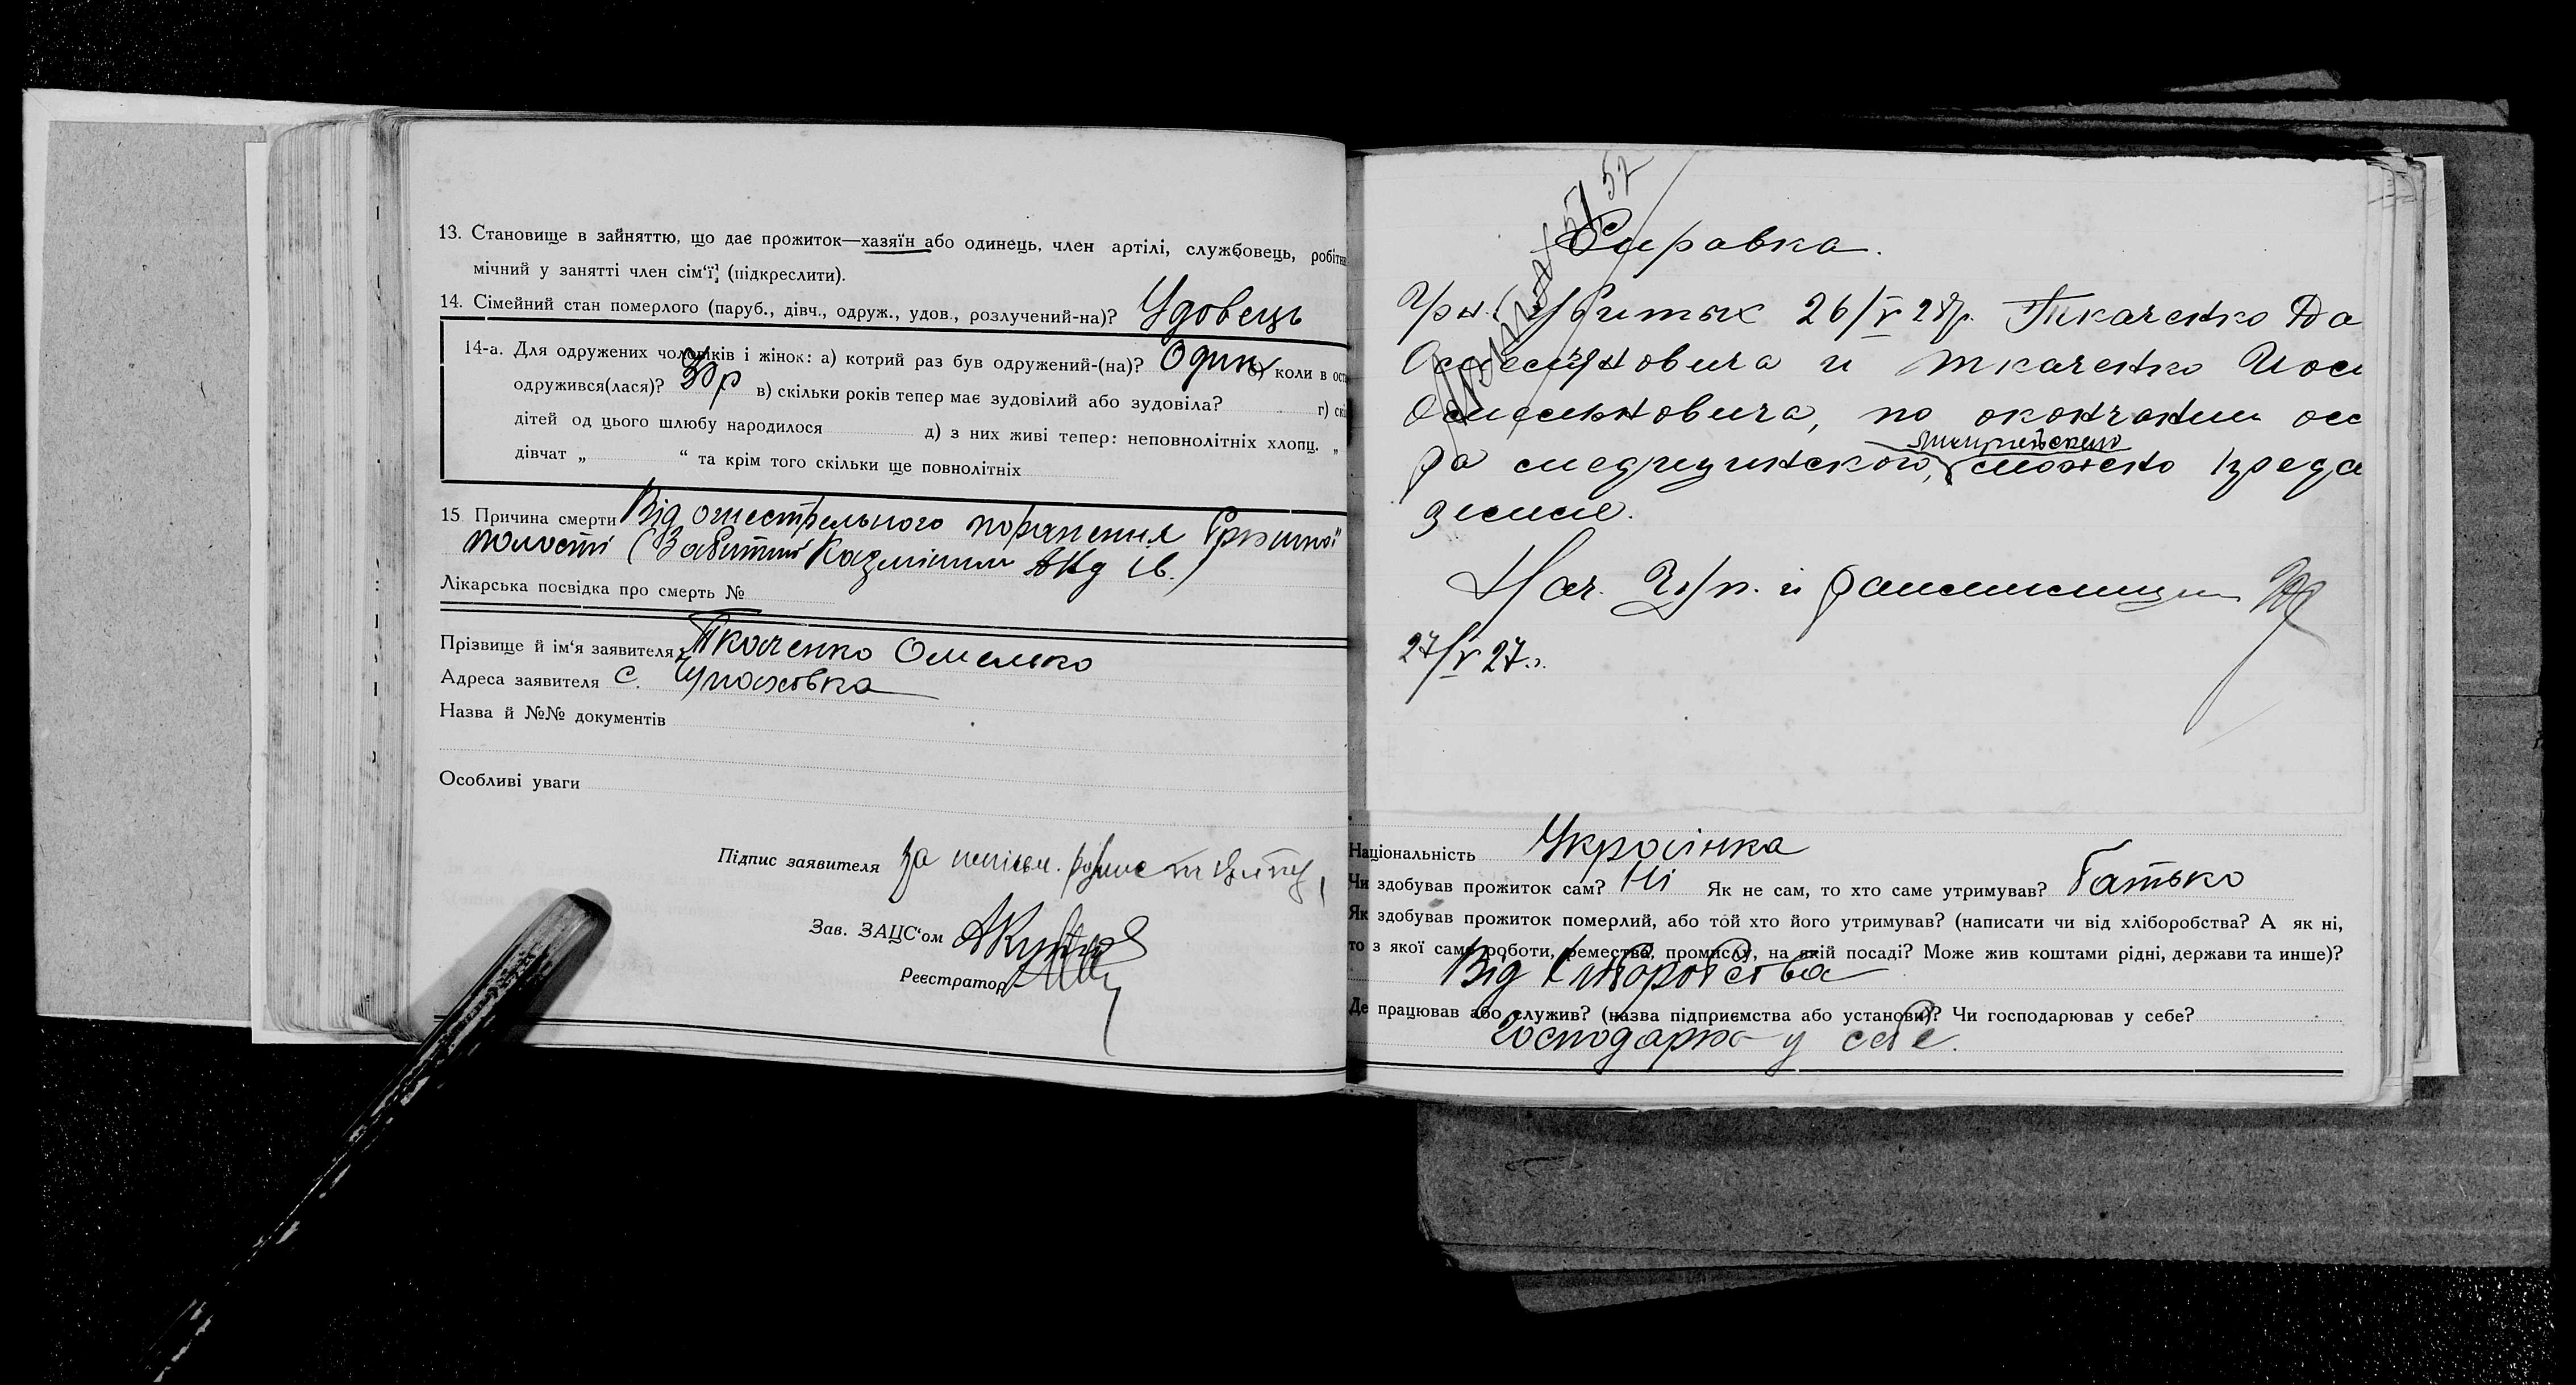 13. Становище в зайняттю, що дає прожиток—хазяїн або одинець, член артілі, службовець, робітни
мічний у занятті член сім‘ї, (підкреслити).
14. Сімейний стан померлого (паруб., дівч., одруж., удов., розлучений-на)? Удовець
14-а. Для одружених чоловіків і жінок: а) котрий раз був одружений-(на)? Один б) коли в ост
одружився(лася)? в) скільки років тепер має зудовілий або зудовіла? г) скі
дітей од цього шлюбу народилося д) з них живі тепер: неповнолітніх хлопц. „
дівчат „ “ та крім того скільки ще повнолітніх
15. Причина смерти Від огнестрельного поранения брюшної
полості (Забитий Казміним Анд Ів.)
Лікарська посвідка про смерть №
Прізвище й ім‘я заявителя Ткаченко Омелько
Адреса заявителя с. Чупаховка
Назва й №№ документів
Особливі уваги
Підпис заявителя за
Зав. ЗАЦС‘ом
Реєстратор
57
Справка.
Убитых 26/V 27р. Ткаченко Да
Омельяновича и Ткаченко Иоси
Омельяновича, по окончании ос
ра медицинского, можно преда
земле.
Нач.
27/V 27г.
Національність Українка
Чи здобував прожиток сам? Ні Як не сам, то хто саме утримував? Батько
Як здобував прожиток померлий, або той хто його утримував? (написати чи від хліборобства? А як ні,
то з якої саме роботи, ремества, промислу, на якій посаді? Може жив коштами рідні, держави та инше)?
Від хліборобства
Де працював або служив? (назва підприємства або установи)? Чи господарював у себе?
Господарка у себе.